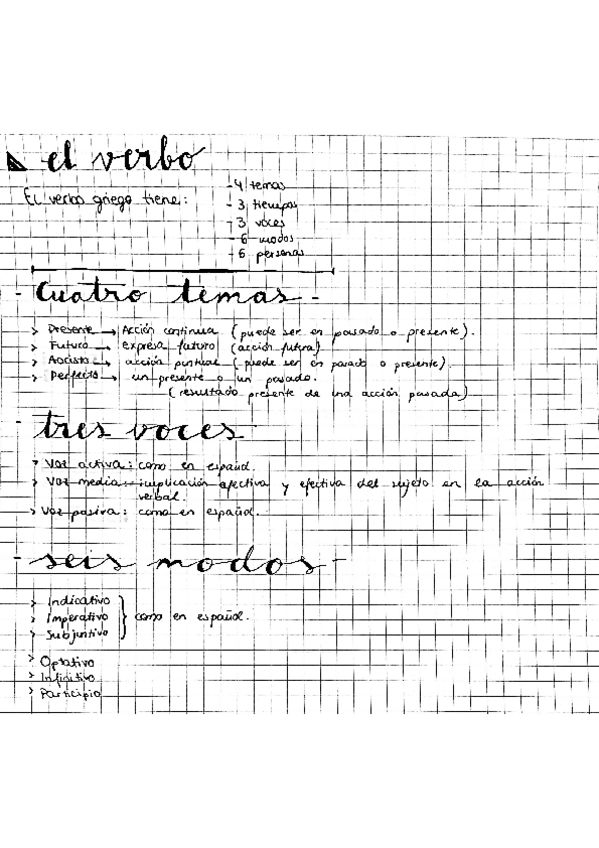 el verbo
El verbo griego tiene:
- 4 temas
- 3 tiempos
- 3 voces
- 6 modos
- 6 personas
- Cuatro temas -
> Presente → Acción continua (puede ser en pasado o presente).
> Futuro → expresa futuro (acción futura)
> Aoristo → acción puntual (puede ser en pasado o presente).
> Perfecto → un presente o un pasado.
(resultado presente de una acción pasada)
- tres voces
> Voz activa: como en español.
> Voz media: implicación afectiva y efectiva del sujeto en la acción
verbal.
> Voz pasiva: como en español.
- seis modos -
> Indicativo
> Imperativo } como en español.
> Subjuntivo
> Optativo
> Infinitivo
> Participio